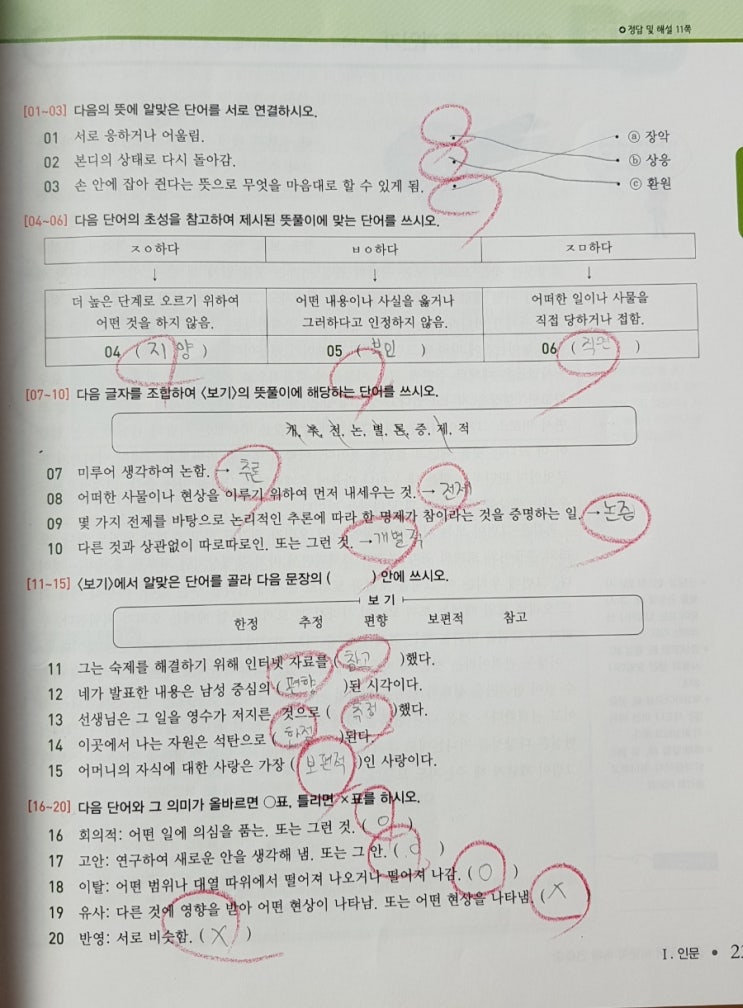 정답 및 해설 11쪽
[01~03] 다음의 뜻에 알맞은 단어를 서로 연결하시오.
01 서로 응하거나 어울림. ⓐ 장악
02 본디의 상태로 다시 돌아감. ⓑ 상응
03 손 안에 잡아 쥔다는 뜻으로 무엇을 마음대로 할 수 있게 됨. ⓒ 환원
[04~06] 다음 단어의 초성을 참고하여 제시된 뜻풀이에 맞는 단어를 쓰시오.
ㅈㅇ하다 ㅂㅇ하다 ㅈㅁ하다
↓ ↓ ↓
더 높은 단계로 오르기 위하여 어떤 내용이나 사실을 옳거나 어떠한 일이나 사물을
어떤 것을 하지 않음. 그러하다고 인정하지 않음. 직접 당하거나 접함.
04 ( 지양 ) 05 ( 부인 ) 06 ( 직면 )
[07~10] 다음 글자를 조합하여 〈보기〉의 뜻풀이에 해당하는 단어를 쓰시오.
개, 추, 전, 논, 별, 론, 증, 제, 적
07 미루어 생각하여 논함. → 추론
08 어떠한 사물이나 현상을 이루기 위하여 먼저 내세우는 것. → 전제
09 몇 가지 전제를 바탕으로 논리적인 추론에 따라 한 명제가 참이라는 것을 증명하는 일. → 논증
10 다른 것과 상관없이 따로따로인. 또는 그런 것. → 개별적
[11~15] 〈보기〉에서 알맞은 단어를 골라 다음 문장의 ( ) 안에 쓰시오.
보기
한정 추정 편향 보편적 참고
11 그는 숙제를 해결하기 위해 인터넷 자료를 ( 참고 )했다.
12 네가 발표한 내용은 남성 중심의 ( 편향 )된 시각이다.
13 선생님은 그 일을 영수가 저지른 것으로 ( 추정 )했다.
14 이곳에서 나는 자원은 석탄으로 ( 한정 )된다.
15 어머니의 자식에 대한 사랑은 가장 ( 보편적 )인 사랑이다.
[16~20] 다음 단어와 그 의미가 올바르면 ○표, 틀리면 ×표를 하시오.
16 회의적: 어떤 일에 의심을 품는. 또는 그런 것. ( ○ )
17 고안: 연구하여 새로운 안을 생각해 냄. 또는 그 안. ( ○ )
18 이탈: 어떤 범위나 대열 따위에서 떨어져 나오거나 떨어져 나감. ( ○ )
19 유사: 다른 것에 영향을 받아 어떤 현상이 나타남. 또는 어떤 현상을 나타냄. ( ×
20 반영: 서로 비슷함. ( × )
Ⅰ. 인문